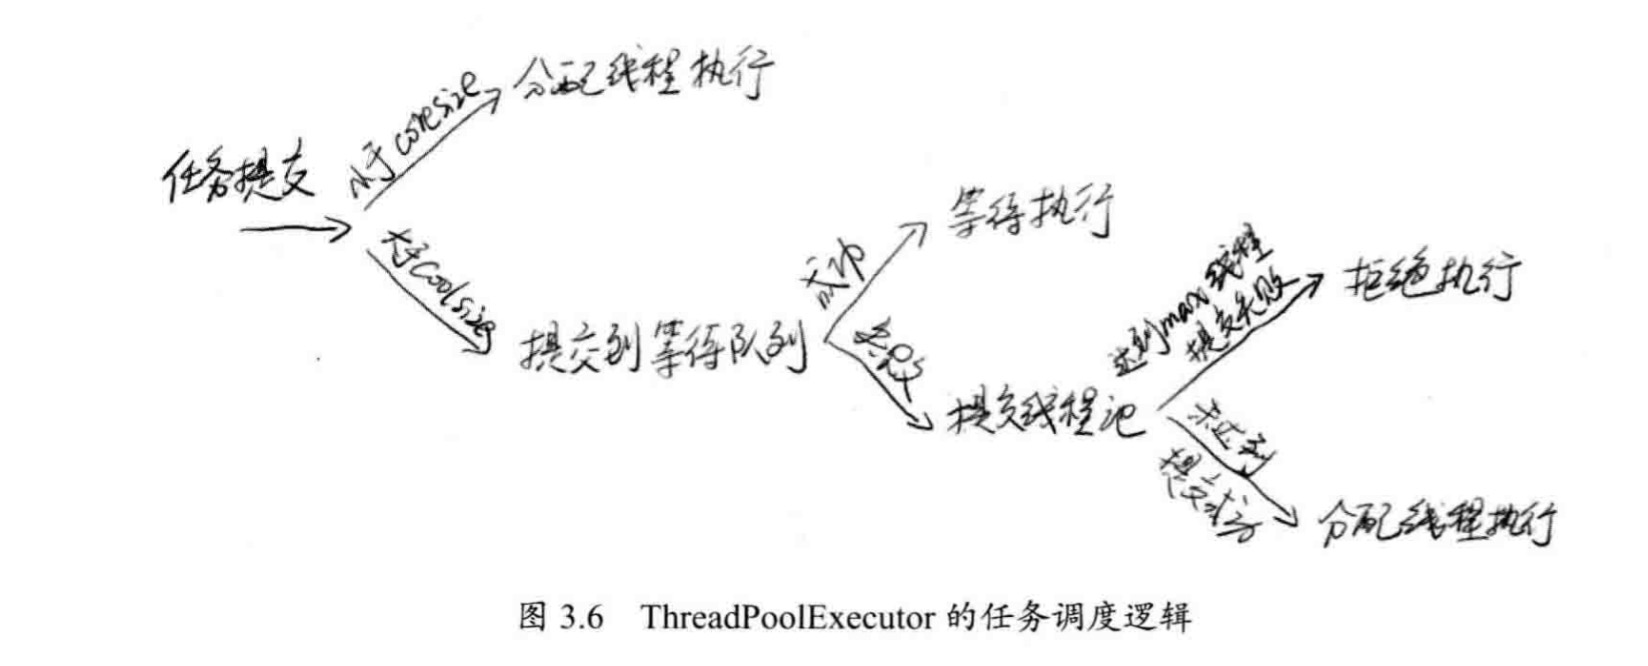 任务提交
小于coresize
分配线程执行
大于Coolsize
提交到等待队列
成功
等待执行
失败
提交线程池
达到max线程
提交失败
拒绝执行
未达到
提交成功
分配线程执行
图 3.6 ThreadPoolExecutor 的任务调度逻辑